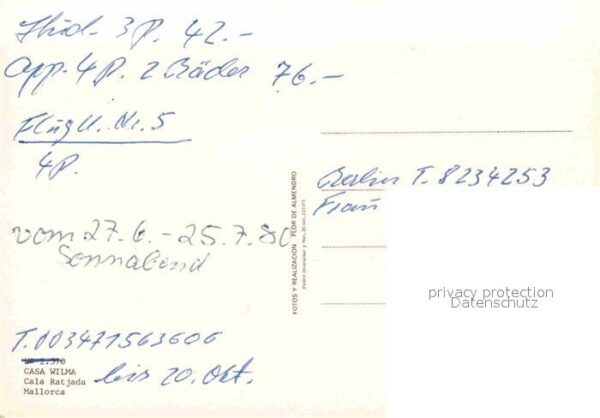 Stud. 3 P. 42.-
App. 4 P. 2 Bäder 76.-
Flug U. Nr. 5
4 P.
vom 27.6. - 25.7.80
Sonnabend
T. 003471563606
Nº 2.370
CASA WILMA
Cala Ratjada
Mallorca
bis 20. Okt.
FOTOS Y REALIZACION FLOR DE ALMENDRO
Berlin T. 8234253
Frau
privacy protection
Datenschutz